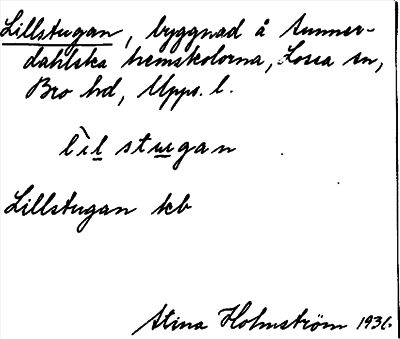 Lillstugan, byggnad å Tunner-
dahlska hemskolorna, Lossa sn,
Bro hd, Upps. l.
lìl stugan
Lillstugan tcb
Stina Holmström 1936